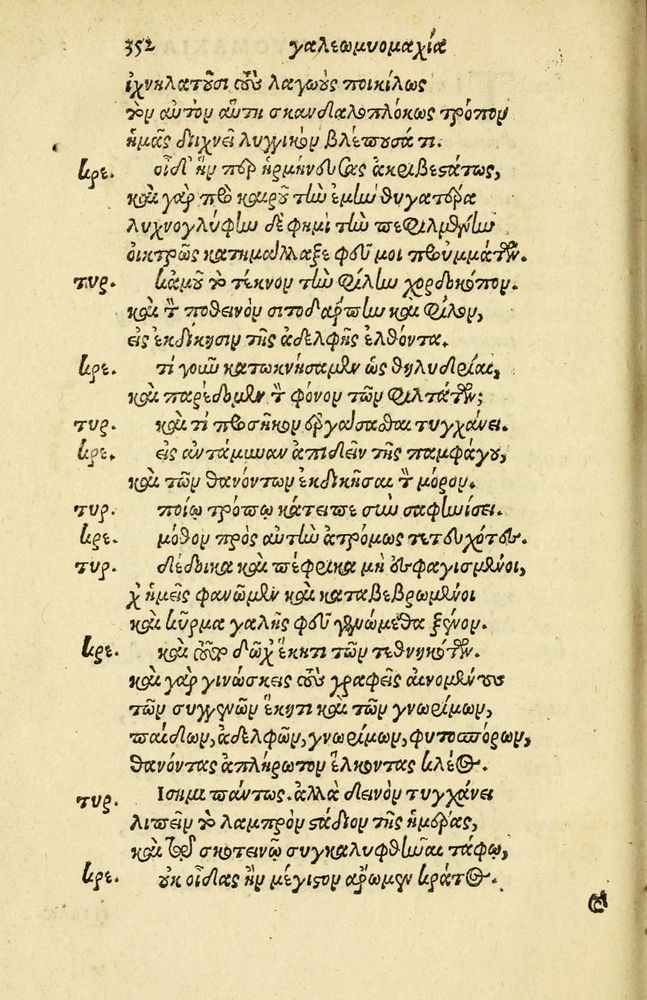 352 γαλεωμυομαχία
ἰχνηλατοῦσι τοὺς λαγωοὺς ποικίλως
τὸν αὐτὸν αὕτη σκανδαλοπλόκως τρόπον
ἡμᾶς διιχνεῖ λυγγικὸν βλέπουσά τι.
κρε. οἶδ' ἣν περ ἡρμήνευσας ἀκριβεστάτως,
καὶ γὰρ πρὸ καιροῦ τὴν ἐμὴν θυγατέρα
λυχνογλύφην δέ φημι τὴν πεφιλμένην
οἰκτρῶς κατημάλλαξε φεῦ μοι πρ ὀμμάτων.
τυρ. κἀμοῦ τὸ τέκνον τὴν φίλην χορδοκόπον.
καὶ τὸν ποθεινὸν σιτοδάρπτην καὶ φίλον,
εἰς ἐκδίκησιν τῆς ἀδελφῆς ἐλθόντα.
κρε. τί γοῦν κατωκνήσαμεν ὡς θηλυδρίαι,
καὶ παρέδομεν τὸν φόνον τῶν φιλτάτων;
τυρ. καὶ τί προσῆκον ἐργάσασθαι τυγχάνει.
κρε. εἰς ἀντάμυναν ἀπιδεῖν τῆς παμφάγου,
καὶ τῶν θανόντων ἐκδικῆσαι τὸν μόρον.
τυρ. ποίῳ τρόπῳ κάτειπε σὺν σαφηνίσει.
κρε. μόθον πρὸς αὐτὴν ἀτρόμως τετευχότες.
τυρ. δέδοικα καὶ πέφρικα μὴ ἐσφαγισμένοι,
χ ἡμεῖς φανῶμεν καὶ καταβεβρωμένοι
καὶ κῦρμα γαλῆς φεῦ γενώμεθα ξένον.
κρε. καὶ τοῦτο δῶχ ἕκητι τῶν τεθνηκότων.
καὶ γὰρ γινώσκεις τοὺς γραφεῖς αἰνουμένους
τῶν συγγενῶν ἕκητι καὶ τῶν γνωρίμων,
παίδων, ἀδελφῶν, γνωρίμων, φυτοσπόρων,
θανόντας ἀπλήρωτον ἕλκοντας κλέος.
τυρ. Ισημι πάντως. ἀλλὰ δεινὸν τυγχάνει
λιπεῖν τὸ λαμπρὸν στάδιον τῆς ἡμέρας,
καὶ τῷ σκοτεινῷ συγκαλυφθῆναι τάφῳ,
κρε. οὐκ οἶδας ἣν μέγιστον ἄρωμεν κράτος.